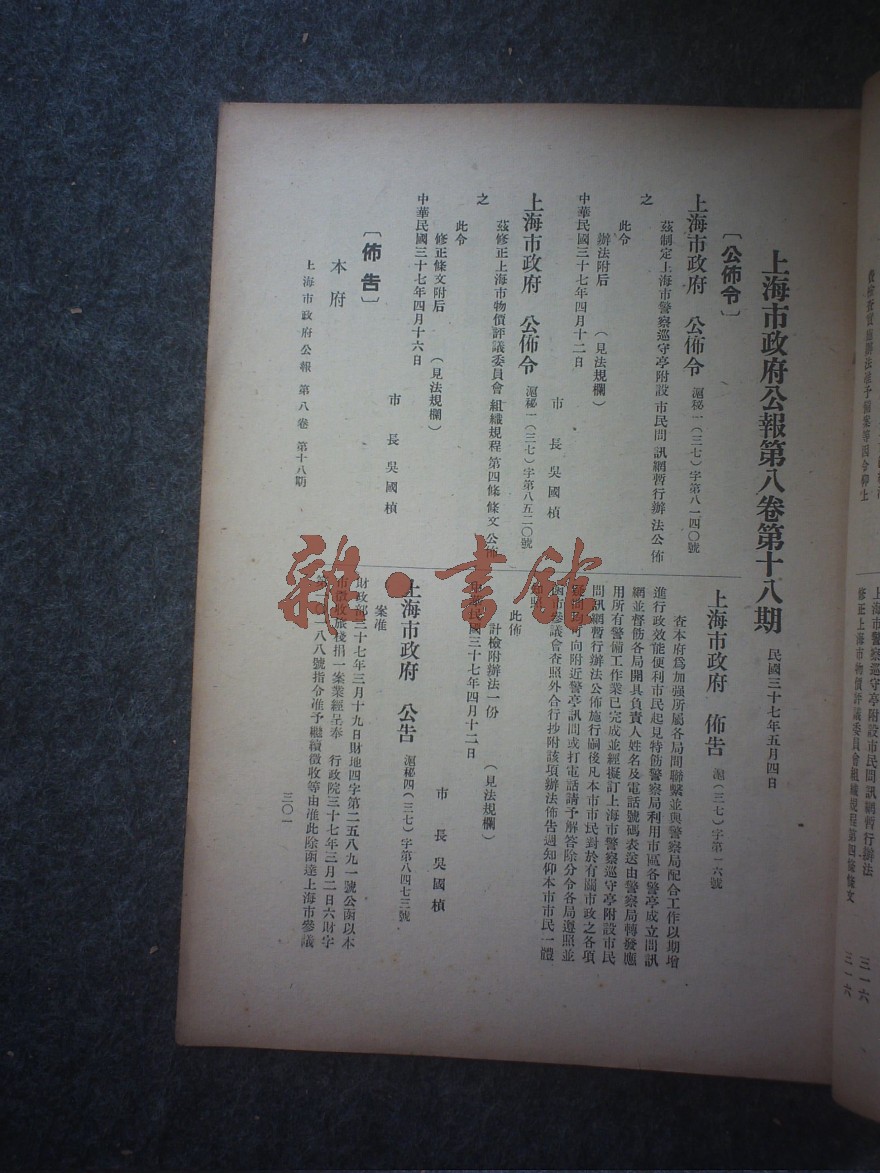 上海市政府公報第八卷第十八期　民國三十七年五月四日
〔公佈令〕
上海市政府　公佈令　滬秘一(三七)字第八一四〇號
茲制定上海市警察巡守亭附設市民問訊網暫行辦法公佈
之
此令
辦法附后　(見法規欄)
中華民國三十七年四月十二日
市長吳國楨
上海市政府　公佈令　滬秘一(三七)字第八五二〇號
茲修正上海市物價評議委員會組織規程第四條條文公佈
之
此令
修正條文附后　(見法規欄)
中華民國三十七年四月十六日
市長吳國楨
〔佈告〕
本府
上海市政府公報　第八卷　第十八期
上海市政府　佈告　滬(三七)字第一六號
查本府為加强所屬各局間聯繫並與警察局配合工作以期增
進行政效能便利市民起見特飭警察局利用市區各警亭成立問訊
網並督飭各局開具負責人姓名及電話號碼表送由警察局轉發應
用所有警備工作業已完成並經擬訂上海市警察巡守亭附設市民
問訊網暫行辦法公佈施行嗣後凡本市市民對於有關市政之各項
可向附近警亭訊問或打電話請予解答除分令各局遵照並
函市參議會查照外合行抄附該項辦法佈告週知仰本市市民一體
此佈
計檢附辦法一份　(見法規欄)
中華民國三十七年四月十二日
市長吳國楨
上海市政府　公告　滬秘四(三七)字第八四七三號
案准
財政部三十七年三月十九日財地四字第二五八九一號公函以本
市徵收旅棧捐一案業經呈奉　行政院三十七年三月二日六財字
一八八號指令准予繼續徵收等由准此除函達上海市參議
三〇一
上海市警察巡守亭附設市民問訊網暫行辦法　三一六
修正上海市物價評議委員會組織規程第四條條文　三一六
雜·書館